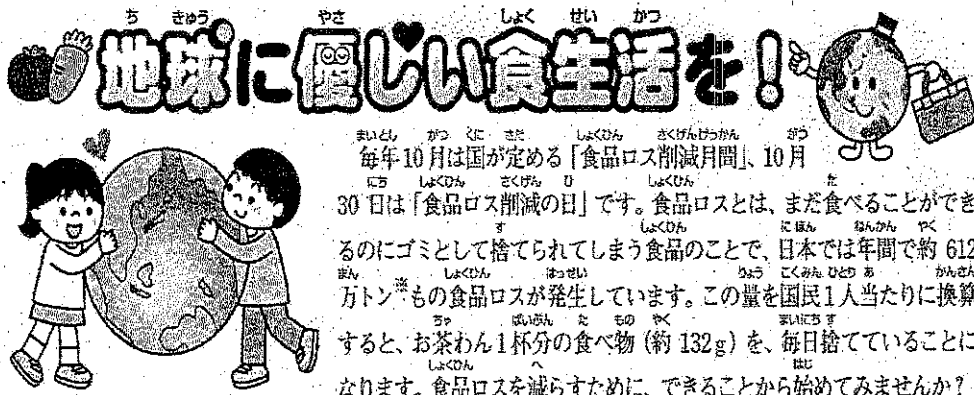 地球に優しい食生活を!
毎年10月は国が定める「食品ロス削減月間」、10月
30日は「食品ロス削減の日」です。食品ロスとは、まだ食べることができ
るのにゴミとして捨てられてしまう食品のことで、日本では年間で約 612
万トン※もの食品ロスが発生しています。この量を国民1人当たりに換算
すると、お茶わん1杯分の食べ物(約 132g)を、毎日捨てていることに
なります。食品ロスを減らすために、できることから始めてみませんか?